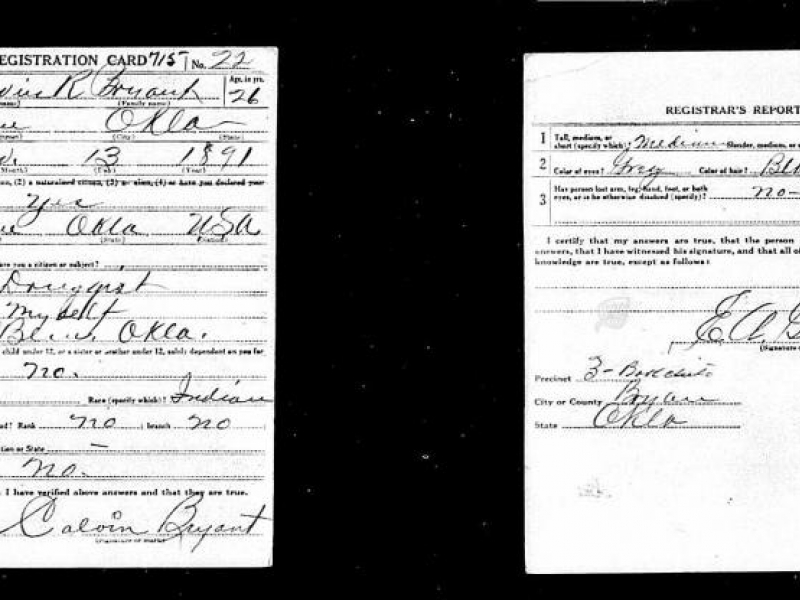 EGISTRATION CARD 715 No. 22
R Bryant Age, in yrs. 26
(Family name)
Okla
(City) (State)
13 1891
(Day) (Year)
(2) a naturalized citizen, (3) an alien, (4) or have you declared your
Yes
Okla USA
(State) (Nation)
are you a citizen or subject?
Druggist
Myself
Okla.
child under 12, or a sister or brother under 12, solely dependent on you for
no.
Race (specify which)? Indian
Rank no branch no
tion or State —
No.
I have verified above answers and that they are true.
Calvin Bryant
REGISTRAR'S REPORT
1 Tall, medium, or short (specify which)? Medium Slender, medium, or
2 Color of eyes? Grey Color of hair? Bl
3 Has person lost arm, leg, hand, foot, or both eyes, or is he otherwise disabled (specify)? no-
I certify that my answers are true, that the person
answers, that I have witnessed his signature, and that all of
knowledge are true, except as follows:
E A
(Signature
Precinct 3-
City or County Bryan
State Okla